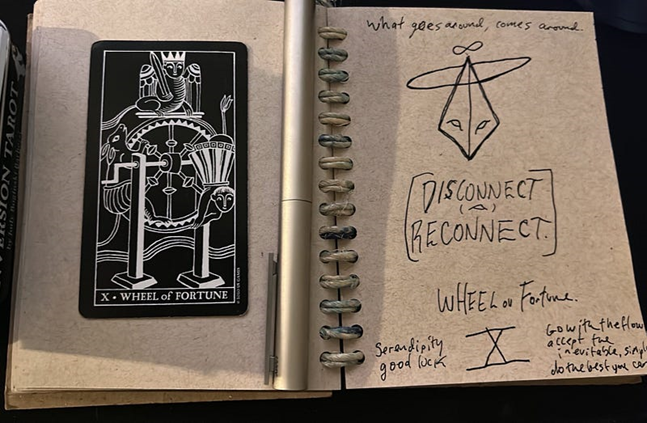 VERSION TAROT
X • WHEEL of FORTUNE
What goes around, comes around.
DISCONNECT
RECONNECT.
WHEEL on Fortune.
X
Serendipity
good luck
Go with the flow
accept the
inevitable, simpl
do the best you can